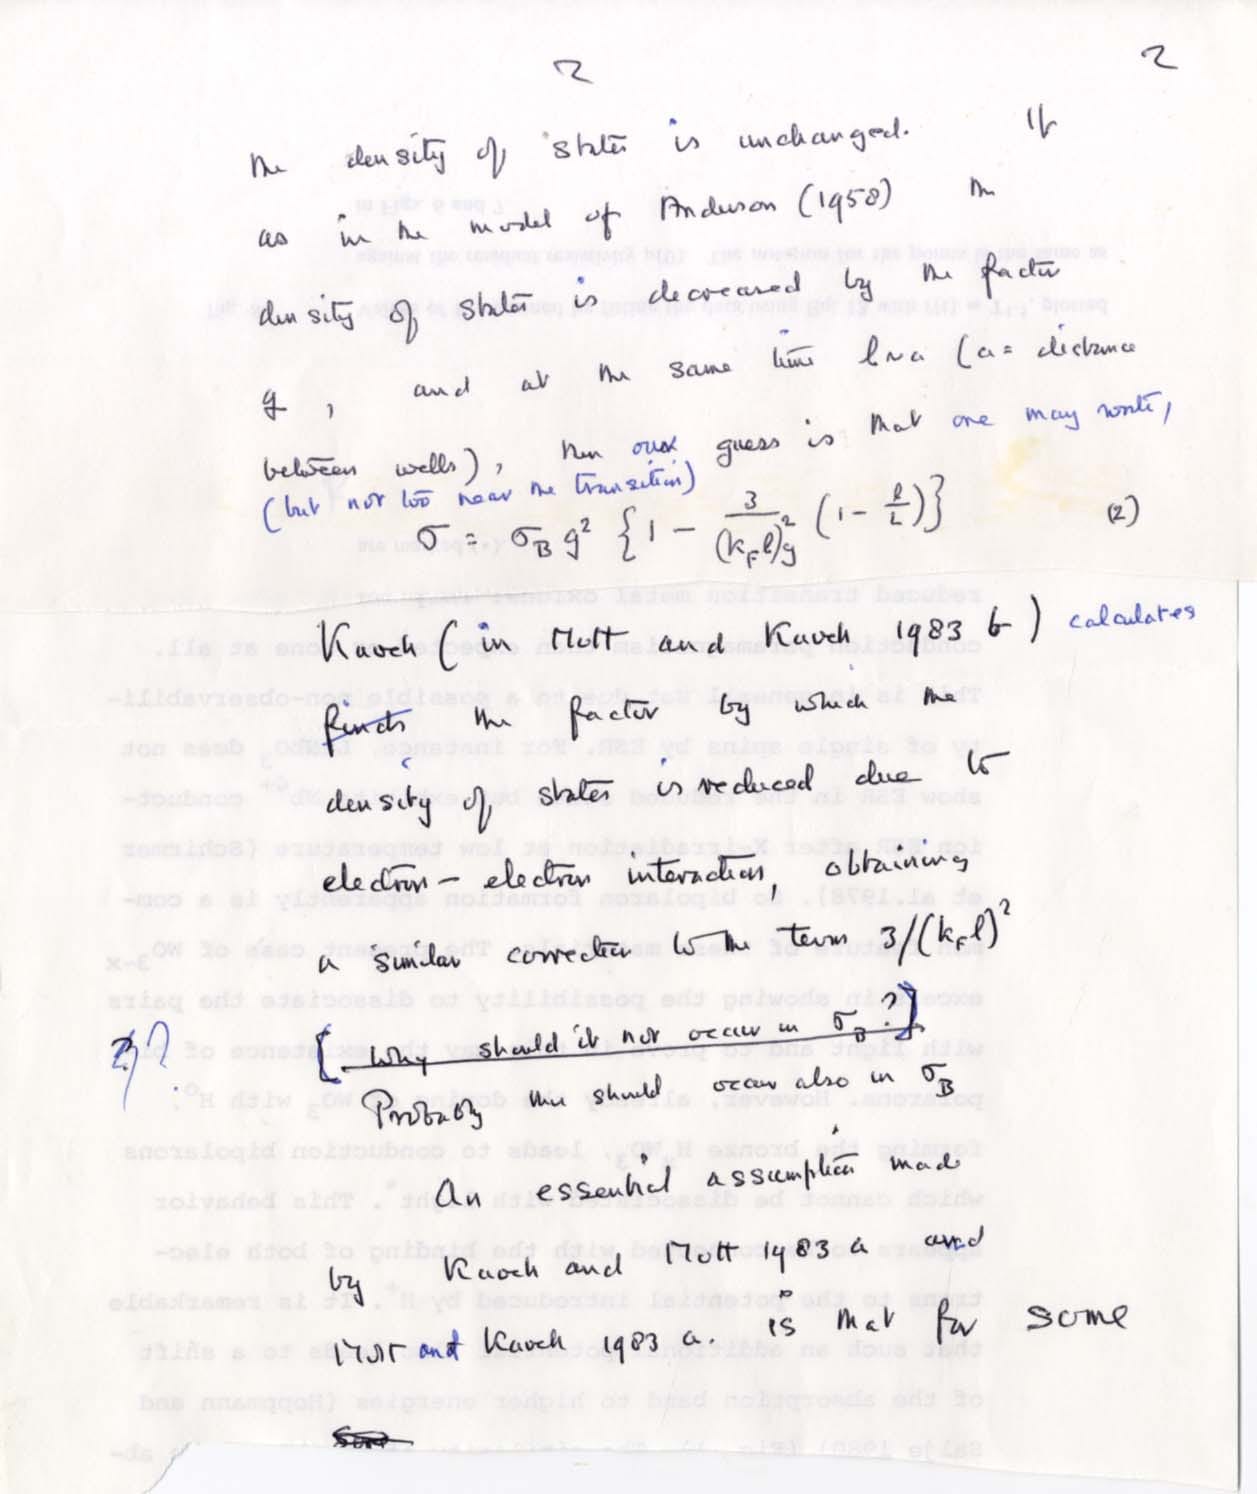 2 2
the density of states is unchanged. If
as in the model of Anderson (1958) the
density of states is decreased by the factor
g, and at the same time l~a (a = distance
between wells), then our guess is that one may write,
(but not too near the transition)
σ = σ_B g² { 1 - 3/((k_F l)² g²) (1 - l/L) } (2)
Kaveh (in Mott and Kaveh 1983 b) calculates
finds the factor by which the
density of states is reduced due to
electron - electron interaction, obtaining
a similar correction to the term 3/(k_F l)²
? [Why should it not occur in σ_B?]
Probably this should occur also in σ_B
An essential assumption made
by Kaveh and Mott 1983 a and
Mott and Kaveh 1983 a. is that for some